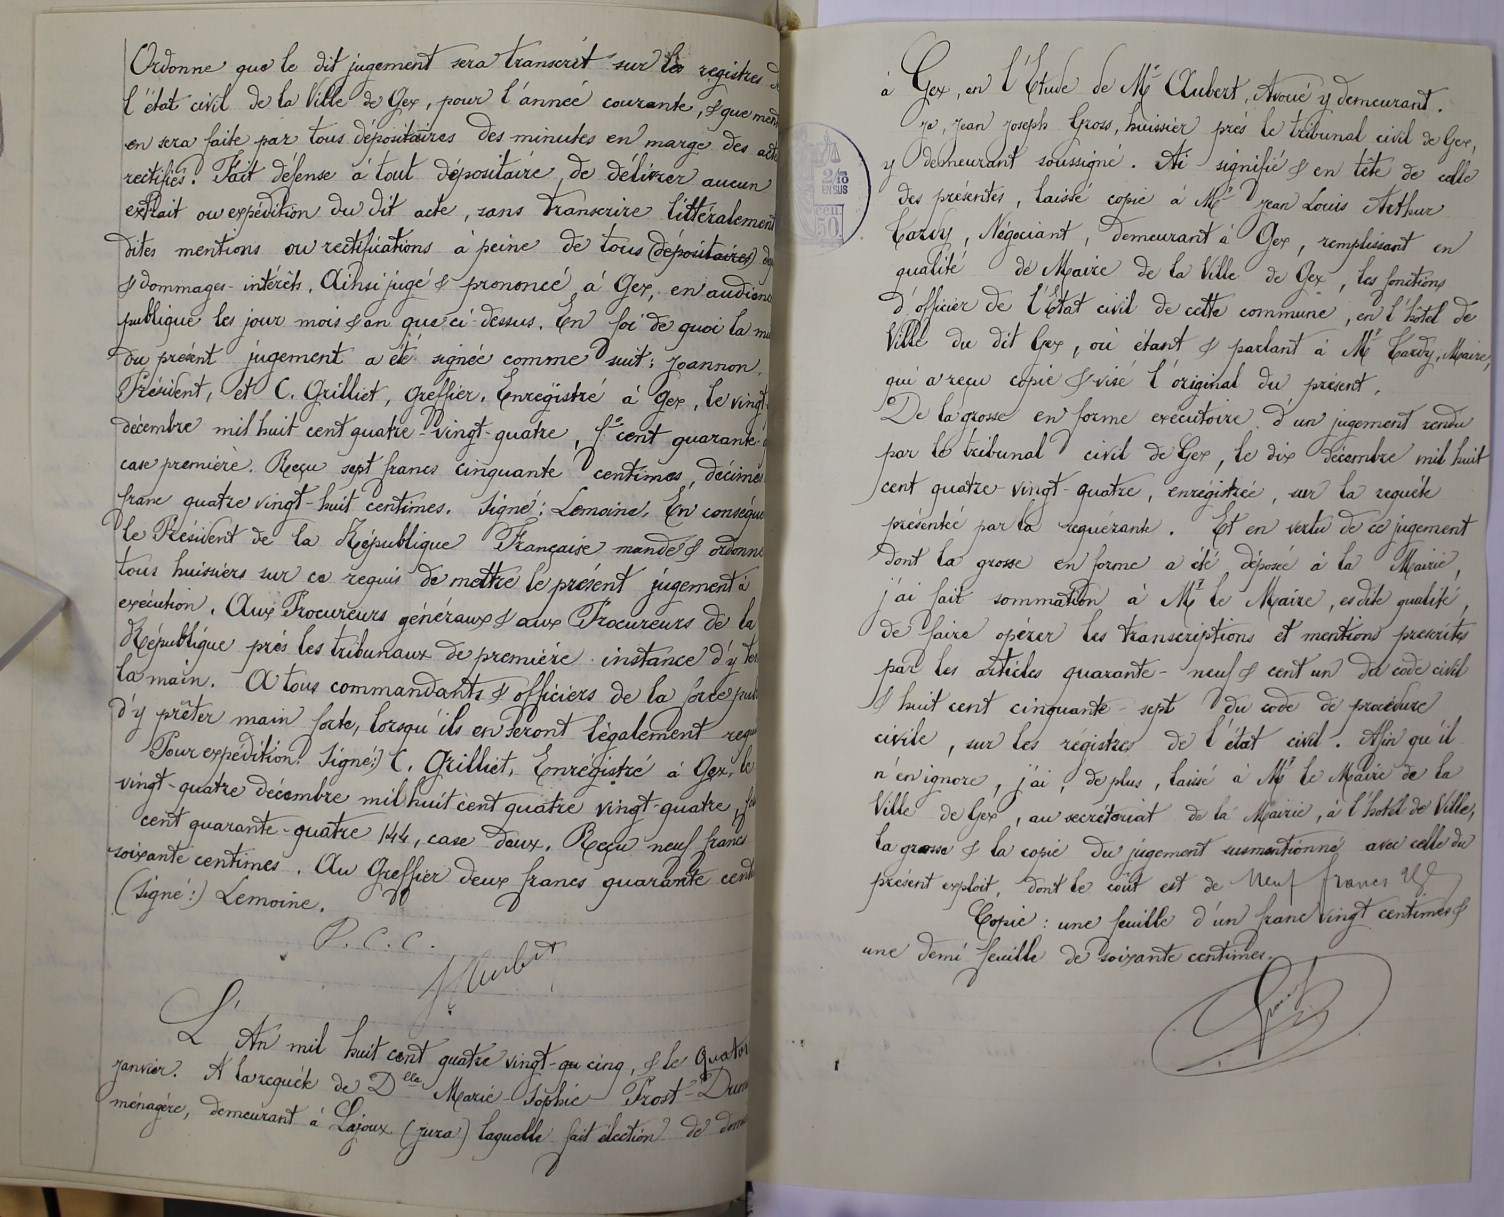 Ordonne que le dit jugement sera transcrit sur les registres d
l'état civil de la Ville de Gex, pour l'année courante, & que ment
en sera faite par tous dépositaires des minutes en marge des acte
rectifiés. Fait défense à tout dépositaire, de délivrer aucun
extrait ou expédition du dit acte, sans transcrire littéralement
dites mentions ou rectifications à peine de tous (dépositaires) dép
& dommages-intérêts. Ainsi jugé & prononcé à Gex, en audienc
publique les jour mois & an que ci-dessus. En foi de quoi la min
du présent jugement a été signée comme suit: Joannon,
Président, et C. Grilliet, Greffier. Enregistré à Gex, le vingt-
décembre mil huit cent quatre-vingt-quatre, f° cent quarante-
case première. Reçu sept francs cinquante centimes, décimes
franc quatre vingt-huit centimes. Signé: Lemoine. En conséque
le Président de la République Française mande & ordonne
tous huissiers sur ce requis de mettre le présent jugement à
exécution. Aux Procureurs généraux & aux Procureurs de la
République près les tribunaux de première instance d'y ten
la main. A tous commandants & officiers de la force pub
d'y prêter main forte, lorsqu'ils en seront légalement requ
Pour expédition. Signé:) C. Grilliet. Enregistré à Gex, le
vingt-quatre décembre mil huit cent quatre vingt-quatre, fol
cent quarante-quatre 144, case deux. Reçu neuf francs
soixante centimes. Au Greffier deux francs quarante cent
(Signé:) Lemoine.
P. C. C.
Aubert
L'An mil huit cent quatre vingt-cinq, & le quator
janvier. A la requête de Dlle Marie-Sophie Prost-Drum
ménagère, demeurant à Lajoux (Jura) laquelle fait élection de dom
à Gex, en l'Etude de Me Aubert, Avoué y demeurant.
Je, Jean Joseph Gross, huissier près le tribunal civil de Gex,
y demeurant soussigné. Ai signifié & en tête de celle
des présentes, laissé copie à Mr Jean Louis Arthur
Tardy, Négociant, demeurant à Gex, remplissant en
qualité de Maire de la Ville de Gex, les fonctions
d'officier de l'Etat civil de cette commune, en l'hôtel de
Ville du dit Gex, où étant & parlant à Mr Tardy, Maire,
qui a reçu copie & visé l'original du présent,
De la grosse en forme exécutoire d'un jugement rendu
par le tribunal civil de Gex, le dix décembre mil huit
cent quatre-vingt-quatre, enrégistrée, sur la requête
présentée par la requérante. Et en vertu de ce jugement
dont la grosse en forme a été, déposée à la Mairie,
j'ai fait sommation à Mr le Maire, es dite qualité,
de faire opérer les transcriptions et mentions prescrites
par les articles quarante-neuf & cent un du code civil
& huit cent cinquante-sept du code de procédure
civile, sur les régistres de l'état civil. Afin qu'il
n'en ignore, j'ai, de plus, laissé à Mr le Maire de la
Ville de Gex, au secrétariat de la Mairie, à l'hôtel de Ville,
la grosse & la copie du jugement susmentionné avec celle du
présent exploit, dont le coût est de Neuf francs
Copie: une feuille d'un franc vingt centimes &
une demi feuille de soixante centimes.
2/10
EN SUS
50